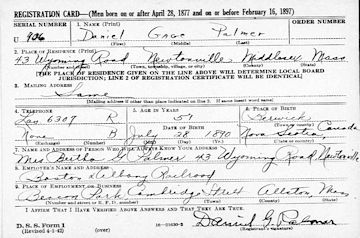 REGISTRATION CARD—(Men born on or after April 28, 1877 and on or before February 16, 1897)
SERIAL NUMBER 1. NAME (Print) ORDER NUMBER
U 906 Daniel Gage Palmer
(First) (Middle) (Last)
2. PLACE OF RESIDENCE (Print)
43 Wyoming Road Newtonville Middlesex Mass
(Number and street) (Town, township, village, or city) (County) (State)
[THE PLACE OF RESIDENCE GIVEN ON THE LINE ABOVE WILL DETERMINE LOCAL BOARD
JURISDICTION; LINE 2 OF REGISTRATION CERTIFICATE WILL BE IDENTICAL]
3. MAILING ADDRESS
Same
[Mailing address if other than place indicated on line 2. If same insert word same]
4. TELEPHONE 5. AGE IN YEARS 6. PLACE OF BIRTH
Las 6307 R 51 Berwick
DATE OF BIRTH (Town or county) Canada
None B July 28 1890 Nova Scotia
(Exchange) (Number) (Mo.) (Day) (Yr.) (State or country)
7. NAME AND ADDRESS OF PERSON WHO WILL ALWAYS KNOW YOUR ADDRESS
Mrs Bertha G Palmer 43 Wyoming Road Newtonville
8. EMPLOYER'S NAME AND ADDRESS
Boston & Albany Railroad
9. PLACE OF EMPLOYMENT OR BUSINESS
Beacon Park Cambridge Street Allston Mass
(Number and street or R. F. D. number) (Town) (County) (State)
I AFFIRM THAT I HAVE VERIFIED ABOVE ANSWERS AND THAT THEY ARE TRUE.
D. S. S. Form 1
(Revised 4-1-42) (over) Daniel G. Palmer
(Registrant's signature)